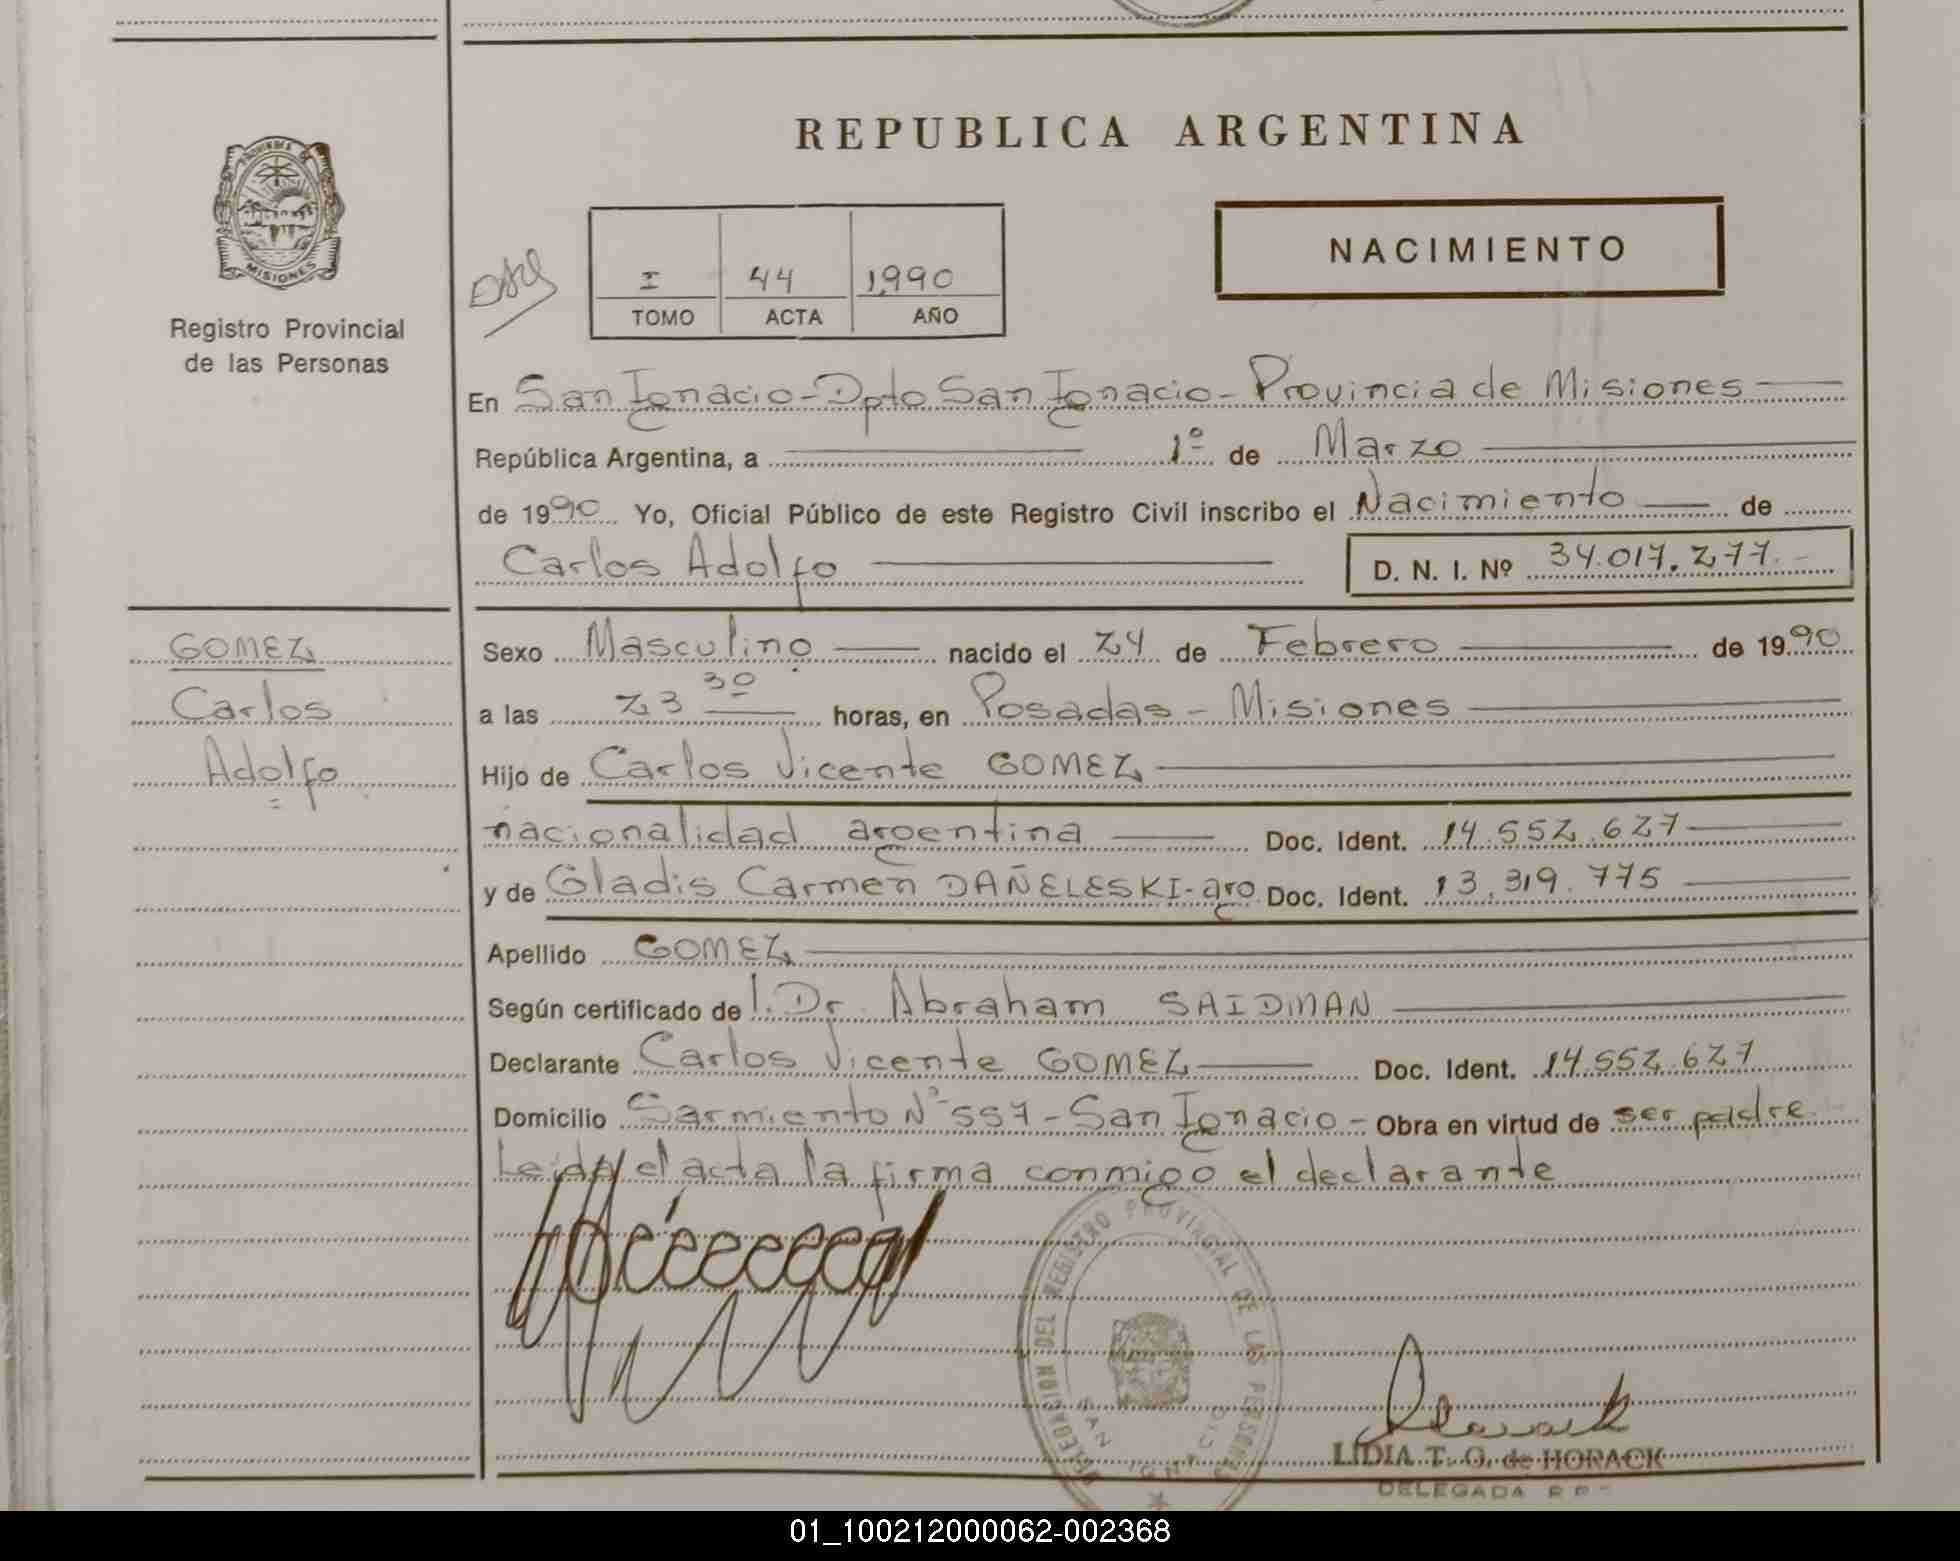 REPUBLICA ARGENTINA
PROVINCIA DE
MISIONES
Registro Provincial
de las Personas
NACIMIENTO
I 44 1990
TOMO ACTA AÑO
En San Ignacio - Dpto San Ignacio - Provincia de Misiones
República Argentina, a 1º de Marzo
de 1990 Yo, Oficial Público de este Registro Civil inscribo el Nacimiento de
Carlos Adolfo D. N. I. Nº 34.017.277.-
GOMEZ
Carlos
Adolfo
Sexo Masculino nacido el 24 de Febrero de 1990
a las 23 30 horas, en Posadas - Misiones
Hijo de Carlos Vicente GOMEZ
nacionalidad argentina Doc. Ident. 14.552.627
y de Gladis Carmen DAÑELESKI - arg Doc. Ident. 13.319.775
Apellido GOMEZ
Según certificado de l. Dr. Abraham SAIDMAN
Declarante Carlos Vicente GOMEZ Doc. Ident. 14.552.627
Domicilio Sarmiento Nº 557 - San Ignacio - Obra en virtud de ser padre
Leida el acta la firma conmigo el declarante
DELEGACION DEL REGISTRO PROVINCIAL DE LAS PERSONAS
SAN IGNACIO
LIDIA T. O. de HORACK
DELEGADA R.P.
01_100212000062-002368